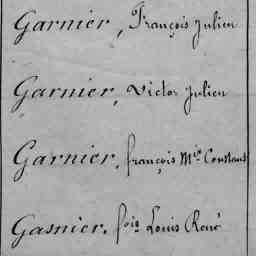 Garnier, François Julien
Garnier, Victor Julien
Garnier, françois Mie Constant
Gasnier, fois Louis René